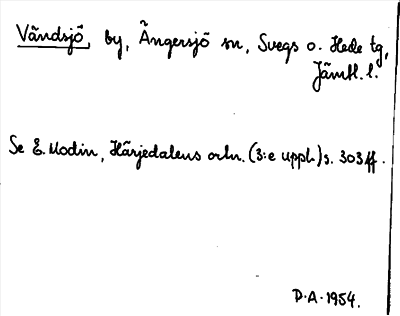 Vändsjö, by, Ängersjö sn, Svegs o. Hede tg,
Jämtl. l.
Se E. Modin, Härjedalens ortn. (3:e uppl.) s. 303 ff.
D.A. 1954.